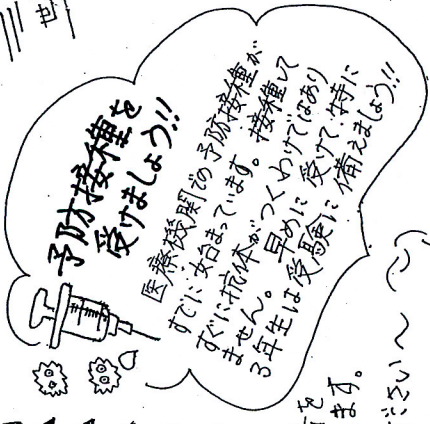 予防接種を
受けましょう!!
医療機関での予防接種が
すでに始まっています。接種して
すぐに抗体がつくわけではあり
ません。早めに受けて、特に
3年生は受験に備えましょう!!
を
ます。
ださい〜